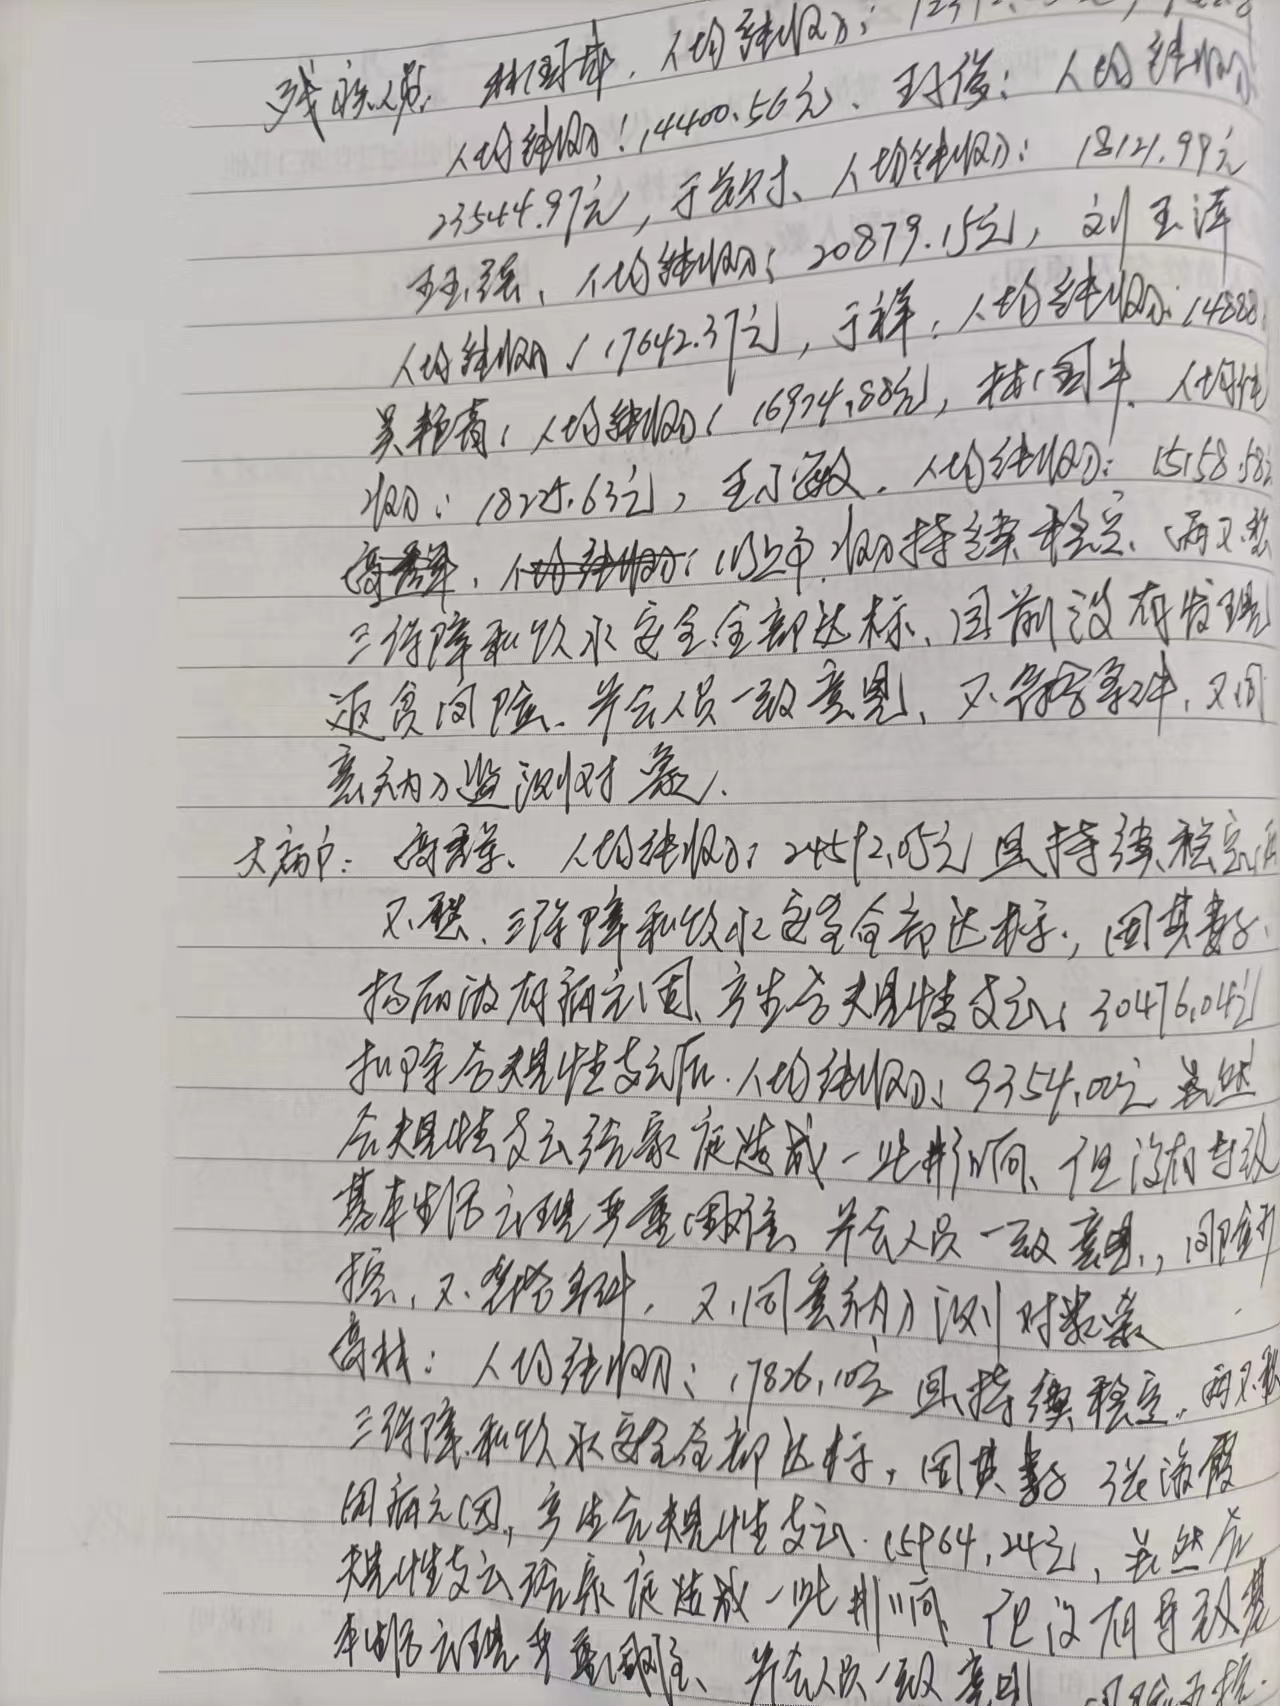 残疾人员: 林国城、人均纯收入:
人均纯收入: 14400.56元、王俊: 人均纯收入
23544.97元, 于 、人均纯收入: 18121.99元
王强、人均纯收入: 20879.15元, 刘玉泽
人均纯收入: 17642.37元, 于祥: 人均纯收入: 14888.
吴艳青: 人均纯收入: 16974.88元, 林国牛、人均纯
收入: 18225.63元, 王 敏、人均纯收入: 15158.58元
以上户、收入持续稳定、两不愁
三保障和饮水安全全部达标、目前没有发现
返贫风险、并会人员一致意见、不符合条件、不同
意纳入监测对象.
大病户: 高 、人均纯收入: 24592.05元且持续稳定、两
不愁、三保障和饮水安全全部达标, 因其妻子
杨 因病元因、产生合夫规性支出: 30476.04元
扣除合夫规性支出后、人均纯收入: 9354.00元 虽然
合夫规性支出给家庭造成一些影响、但没有导致
基本生活出现严重困难、并会人员一致意见, 风险可
控、不符合条件, 不同意纳入测对象
高林: 人均纯收入: 17826.10元 且持续稳定, 两不愁
三保障和饮水安全全部达标, 因其妻子 张海霞
因病元因, 产生合夫规性支出 15964.24元, 虽然合
夫规性支出给家庭造成一些影响、但没有导致基
本生活出现严重困难、并会人员一致意见 风险可控.